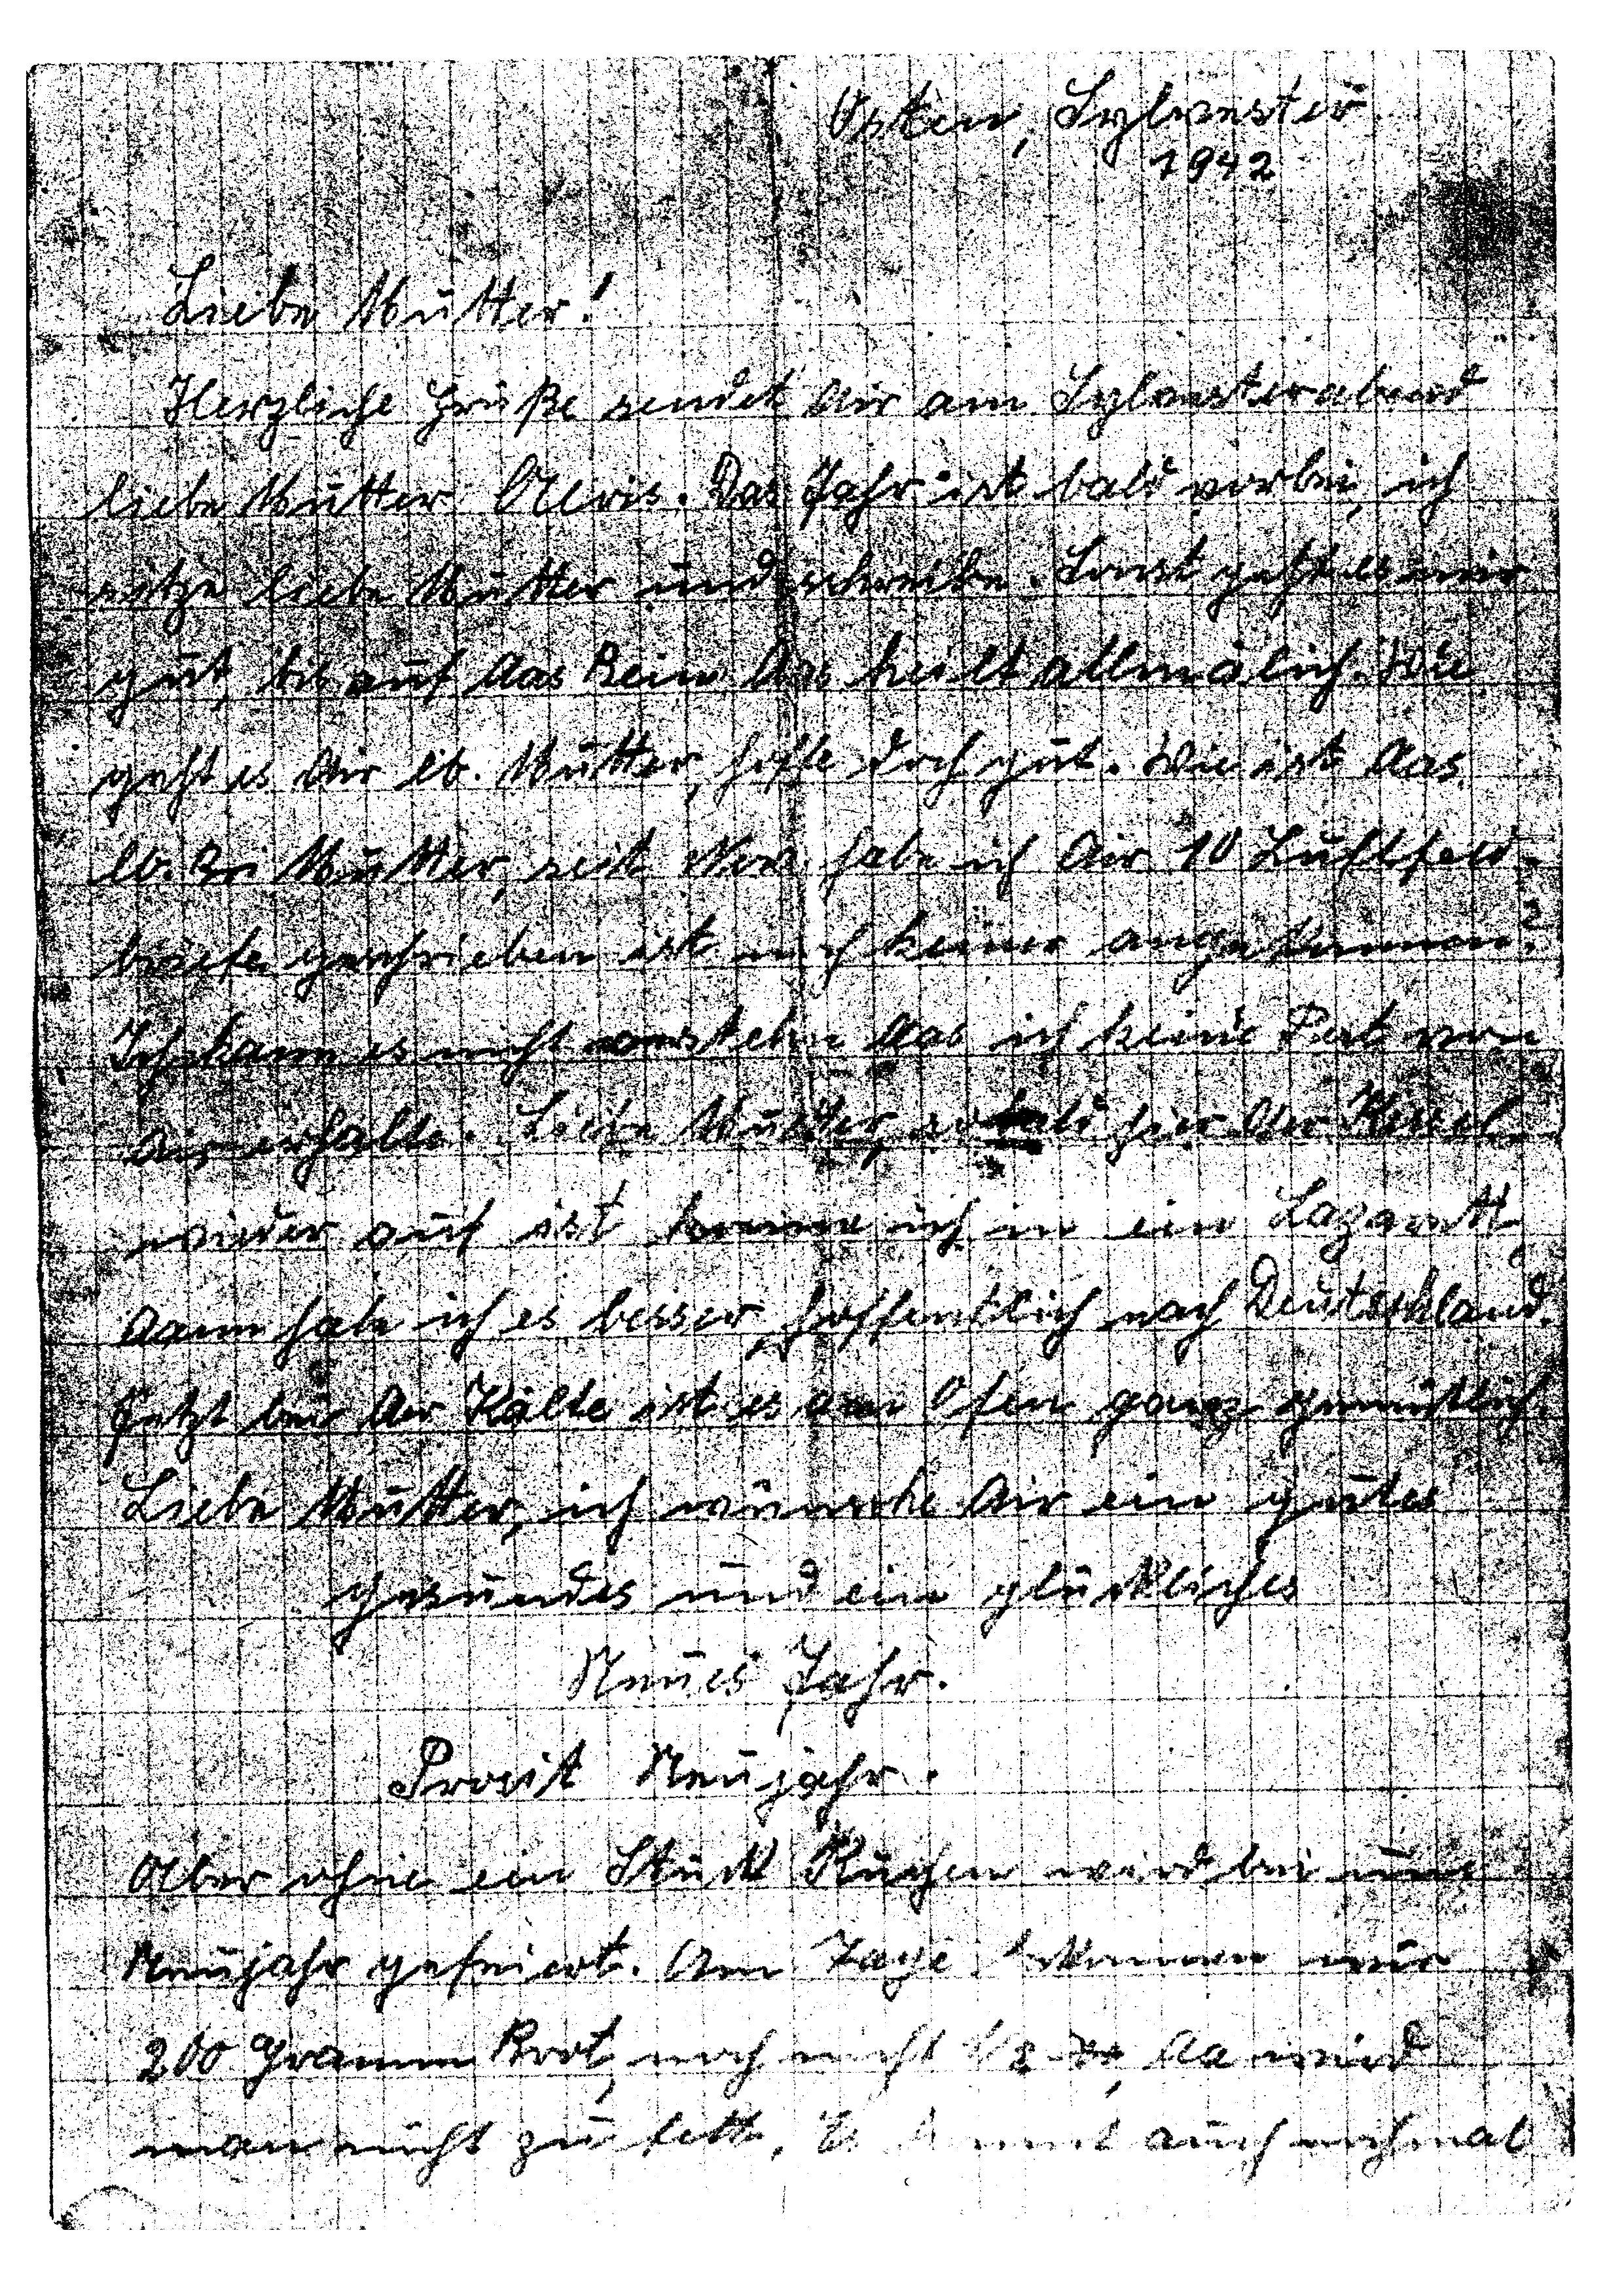 Osten, Sylvester
1942
Liebe Mutter!
Herzliche Grüße sendet dir am Sylvesterabend
liebe Mutter Alois. Das Jahr ist bald vorbei, ich
sitze liebe Mutter und schreibe. Sonst geht es mir
gut, bis auf das Bein das heilt allmälich. Wie
geht es dir lb. Mutter, hoffe doch gut. Wie ist das
lb. Mutter, seit Nov. habe ich dir 10 Luftfeld-
briefe geschrieben ist noch keiner angekommen?
Ich kann es nicht verstehn das ich keine Post von
dir erhalte. Liebe Mutter, sobald hier der Kessel
wieder auf ist komme ich in ein Lazarett,
dann habe ich es besser, hoffentlich nach Deutschland.
Jetzt bei der Kälte ist es am Ofen ganz gemütlich.
Liebe Mutter, ich wünsche dir ein gutes
gesundes und ein glückliches
Neues Jahr.
Prosit Neujahr.
Aber ohne ein Stück Kuchen wird bei uns
Neujahr gefeiert. Am Tage bekommen wir
200 Gramm Brot, noch nicht 1/2 da wird
man nicht zu fett. Es kommt auch nochmal